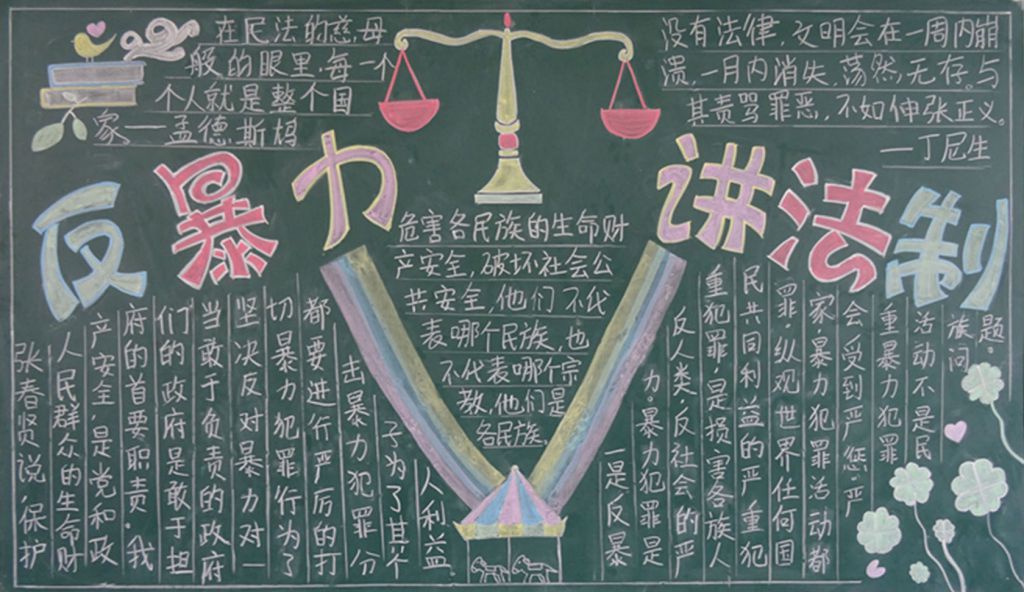 在民法的慈母
般的眼里,每一个
个人就是整个国
家——孟德斯鸠
没有法律,文明会在一周内崩
溃,一月内消失,荡然无存。与
其责骂罪恶,不如伸张正义。
—丁尼生
反暴力 讲法制
张春贤说,保护
人民群众的生命财
产安全,是党和政
府的首要职责,我
们的政府是敢于担
当敢于负责的政府
坚决反对暴力对一
切暴力犯罪行为了
都要进行严厉的打
击暴力犯罪分
子为了其个
人利益
危害各民族的生命财
产安全,破坏社会公
共安全,他们不代
表哪个民族,也
不代表哪个宗
教,他们是
各民族。
一是反暴
力。暴力犯罪是
反人类,反社会的严
重犯罪,是损害各族人
民共同利益的严重犯
罪,纵观世界任何国
家,暴力犯罪活动都
会受到严惩,严
重暴力犯罪
活动不是民
族问
题。